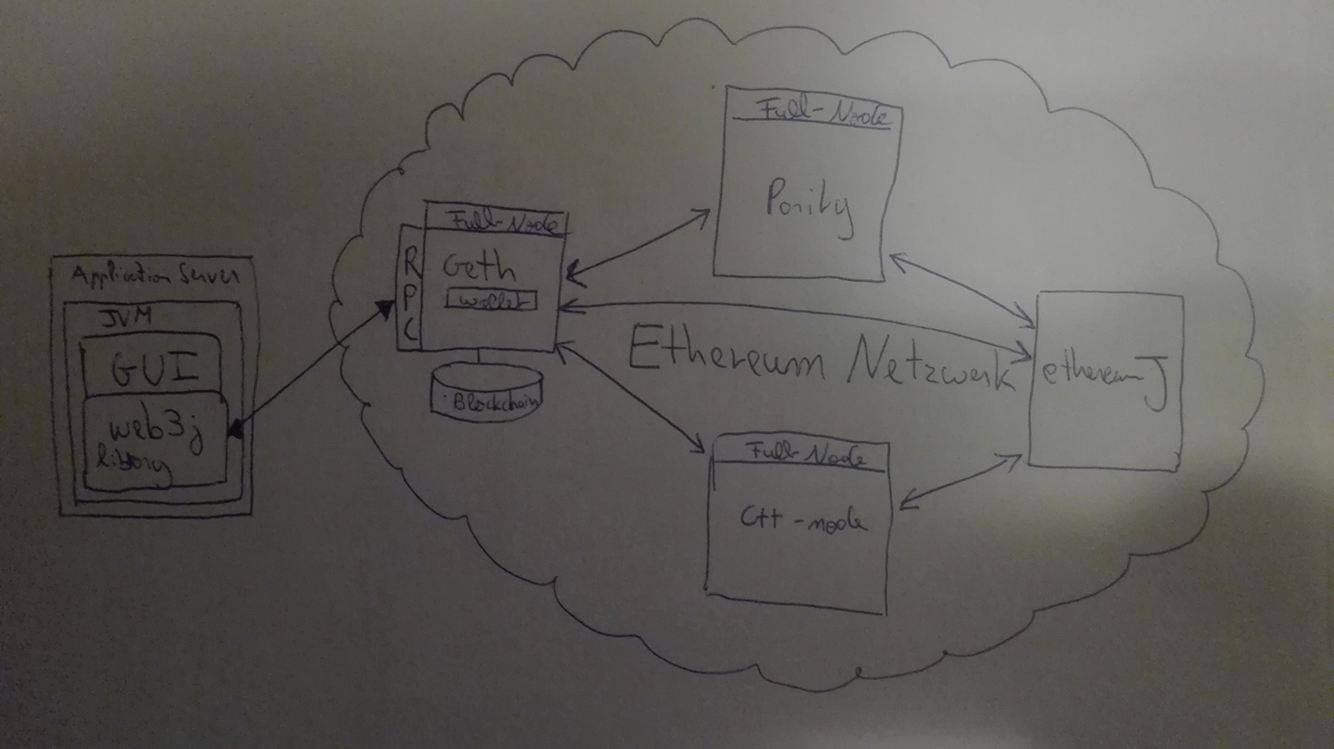 Application Server
JVM
GUI
web3j
library
RPC
Full-Node
Geth
wallet
Blockchain
Full-Node
Parity
Ethereum Netzwerk
ethereumJ
Full-Node
C++-node